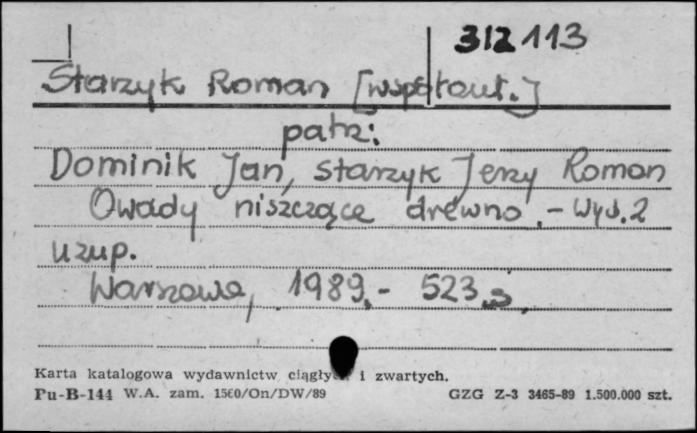 312113
Starzyk Roman [współaut.]
patrz:
Dominik Jan, Starzyk Jerzy Roman
Owady niszczące drewno. - Wyd. 2
uzup.
Warszawa, 1989. - 523 s.
Karta katalogowa wydawnictw ciągłych i zwartych.
Pu-B-144 W.A. zam. 1560/On/DW/89 GZG Z-3 3465-89 1.500.000 szt.